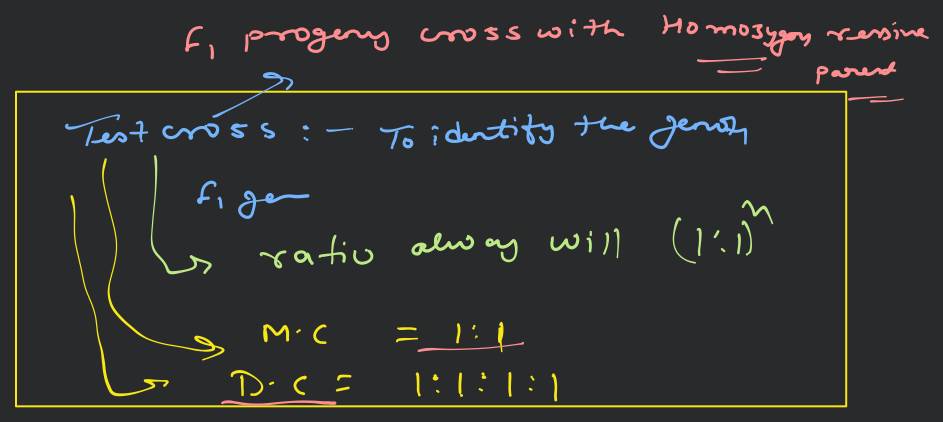 F₁ progeny cross with Homozygous ressive
parent
Test cross :- To identify the
F₁ gen
ratio alway will (1:1)ⁿ
M.C = 1:1
D.C = 1:1:1:1